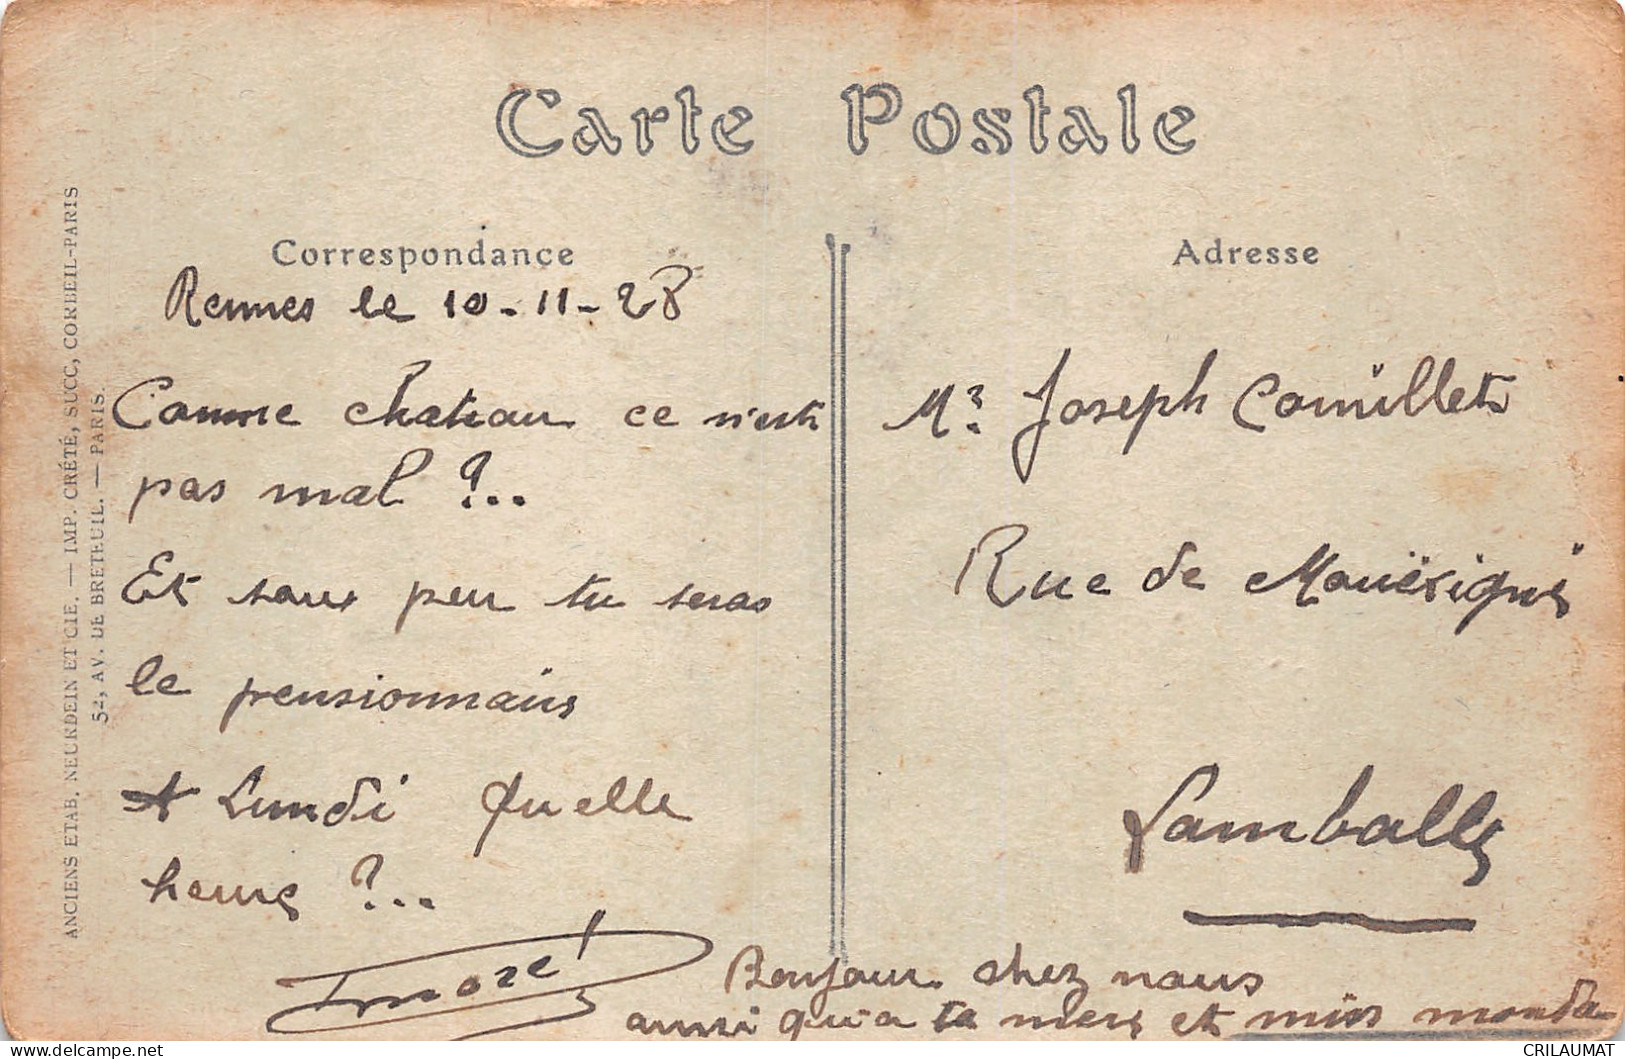 Carte Postale
Correspondance
Rennes le 10-11-28
Comme chateau ce n'est
pas mal ?..
Et sous peu tu seras
le pensionnaire
A Lundi Quelle
heure ?..
Bonjour chez nous
ainsi qu'a ta mere et miss
Adresse
Mr Joseph
Rue de
Lamballe
ANCIENS ETAB. NEURDEIN ET CIE. — IMP. CRÉTÉ, SUCC, CORBEIL-PARIS
52, AV. DE BRETEUIL. — PARIS.
CRILAUMAT